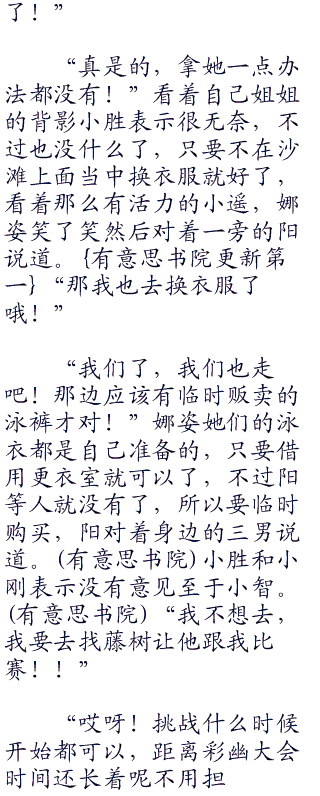 了！”
“真是的，拿她一点办
法都没有！”看着自己姐姐
的背影小胜表示很无奈，不
过也没什么了，只要不在沙
滩上面当中换衣服就好了，
看着那么有活力的小遥，娜
姿笑了笑然后对着一旁的阳
说道。{有意思书院更新第
一}“那我也去换衣服了
哦！”
“我们了，我们也走
吧！那边应该有临时贩卖的
泳裤才对！”娜姿她们的泳
衣都是自己准备的，只要借
用更衣室就可以了，不过阳
等人就没有了，所以要临时
购买，阳对着身边的三男说
道。(有意思书院)小胜和小
刚表示没有意见至于小智。
(有意思书院)“我不想去，
我要去找藤树让他跟我比
赛！！”
“哎呀！挑战什么时候
开始都可以，距离彩幽大会
时间还长着呢不用担